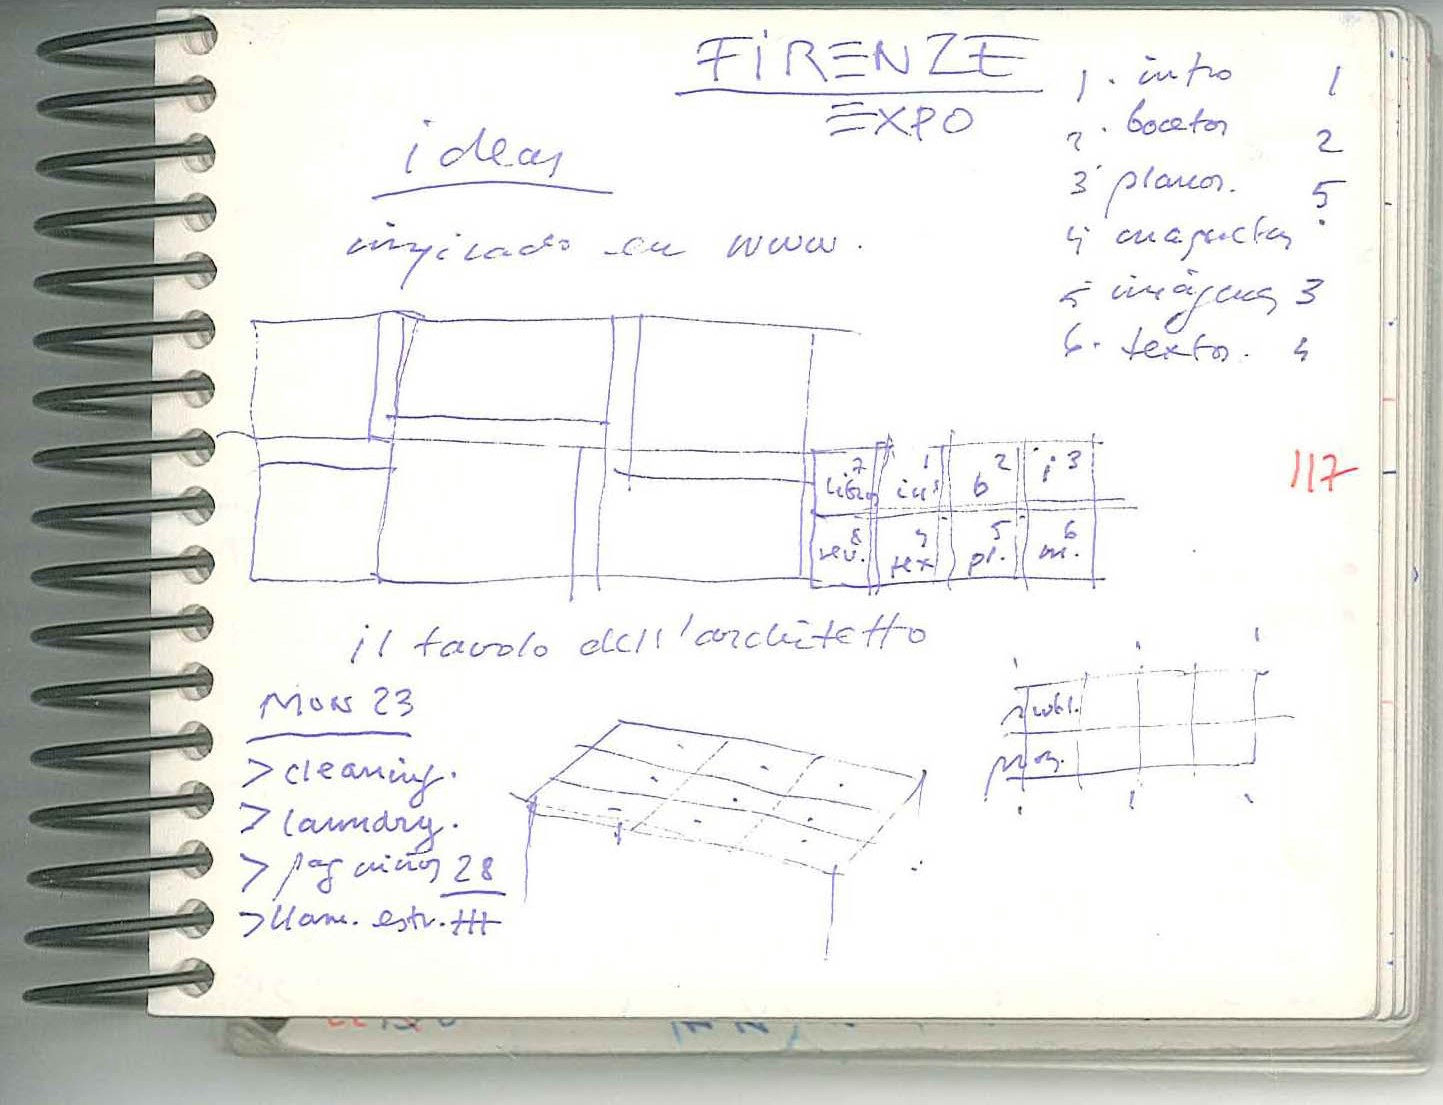 FIRENZE
EXPO
ideas
inspirado en www.
1. intro 1
2. bocetos 2
3. planos. 5
4 maquetas
5 imágenes 3
6. textos. 4
7 1 2 3
libros int b i
8 4 5 6
rev. tex pl. m.
117
il tavolo dell'architetto
publ.
MON 23
> cleaning.
> laundry.
> pag 28
> llam. estr.